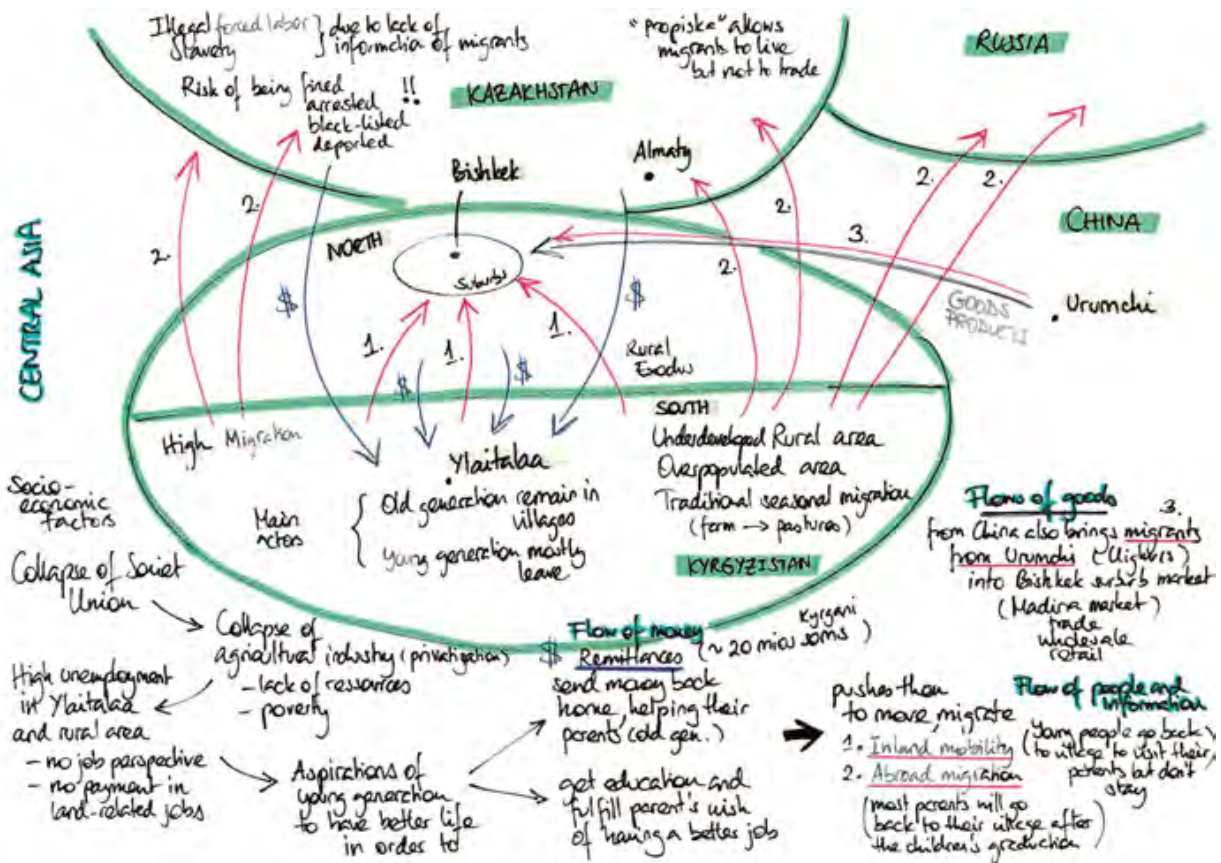 Illegal forced labor
Slavery
due to lack of
information of migrants
Risk of being fired
arrested
black-listed
deported
!!
KAZAKHSTAN
"propiska" allows
migrants to live
but not to trade
RUSSIA
CENTRAL ASIA
Bishkek
Almaty
CHINA
NORTH
Suburbs
2.
2.
2.
2.
2.
2.
3.
GOODS
PRODUCTS
Urumchi
$
$
1.
1.
1.
$
$
Rural
Exodus
High Migration
SOUTH
Underdeveloped Rural area
Overpopulated area
Traditional seasonal migration
(farm → pastures)
Ylaitalaa
Main
actors
Old generation remain in
villages
Young generation mostly
leave
KYRGYZISTAN
Socio-
economic
factors
Collapse of Soviet
Union
Collapse of
agricultural industry (privatization)
- lack of ressources
- poverty
High unemployment
in Ylaitalaa
and rural area
- no job perspective
- no payment in
land-related jobs
Aspirations of
young generation
to have better life
in order to
Flow of money
$ Remittances (~ 20 soms)
send money back
home, helping their
parents (old gen.)
get education and
fulfill parent's wish
of having a better job
pushes them
to move, migrate
1. Inland mobility
2. Abroad migration
(most parents will go
back to their village after
the children's graduation)
Flows of goods
3.
from China also brings migrants
from Urumchi (Uighurs)
into Bishkek suburb market
(Madina market)
trade
wholesale
retail
Flow of people and
information
(Young people go back
to village to visit their
parents but don't
stay)